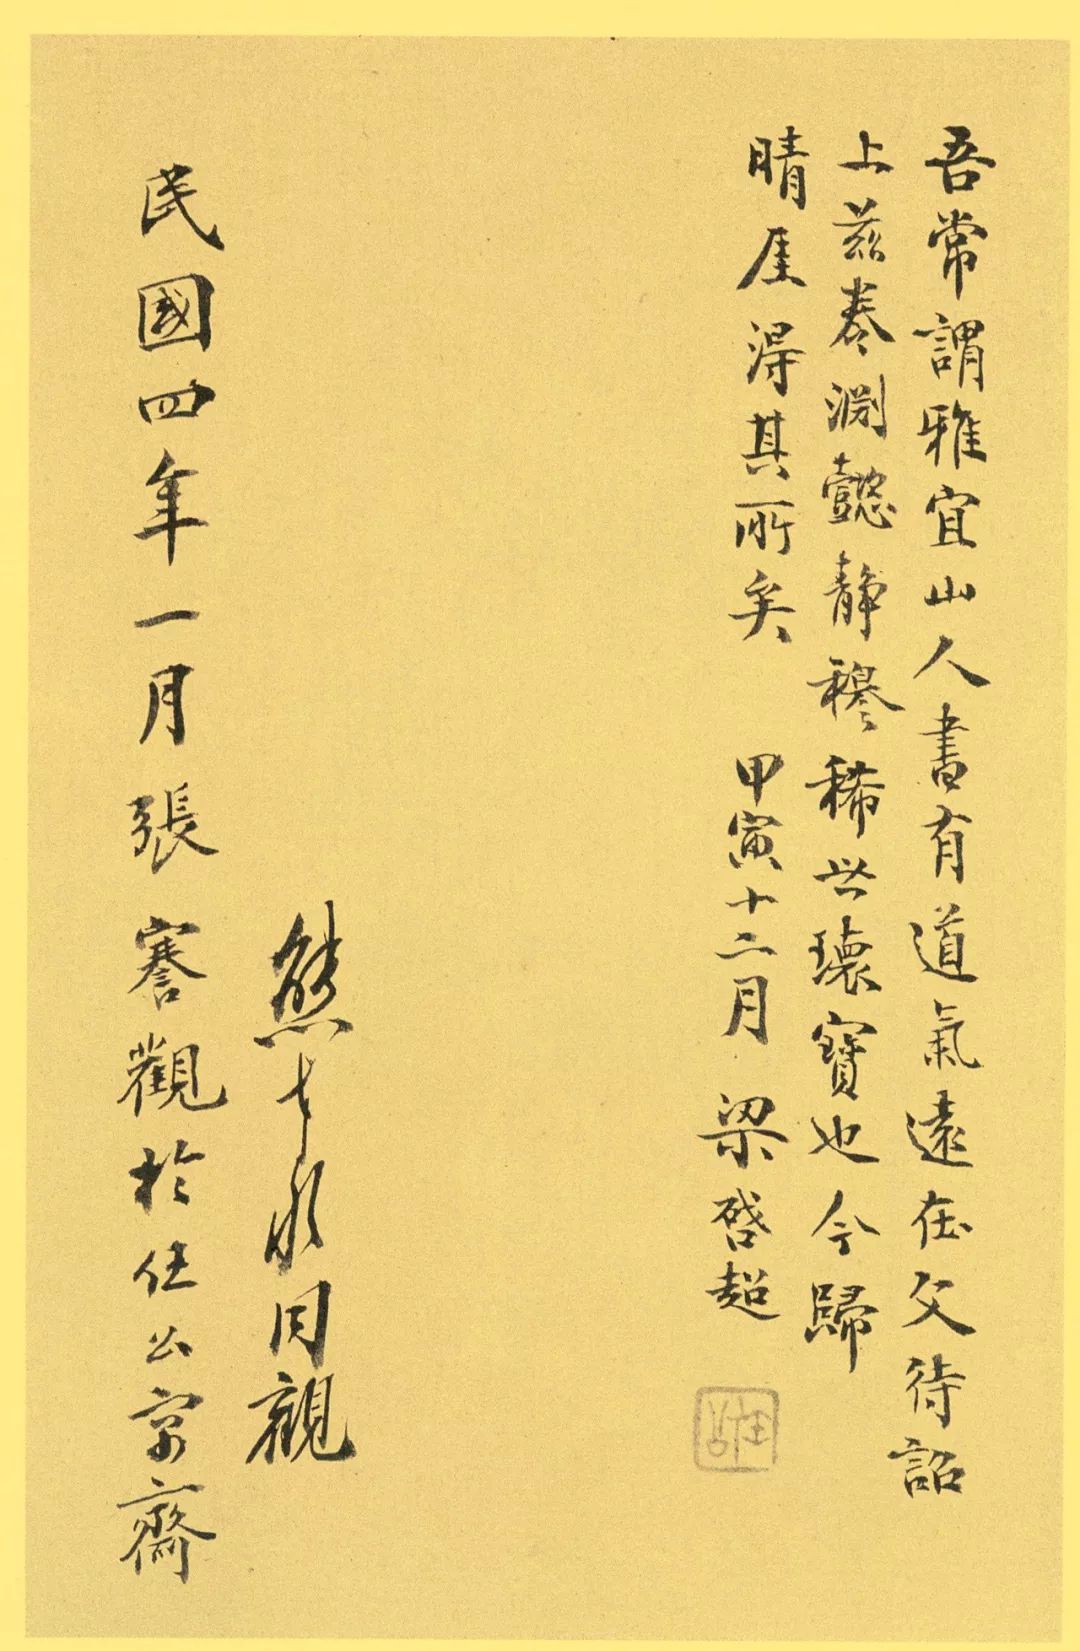 吾常謂雅宜山人書有道氣遠在父待詔
上茲卷淵懿靜穆稀世瓌寶也今歸
晴厓得其所矣　甲寅十二月　梁啓超
任公
熊希齡同觀
民國四年一月張謇觀於任公京齋